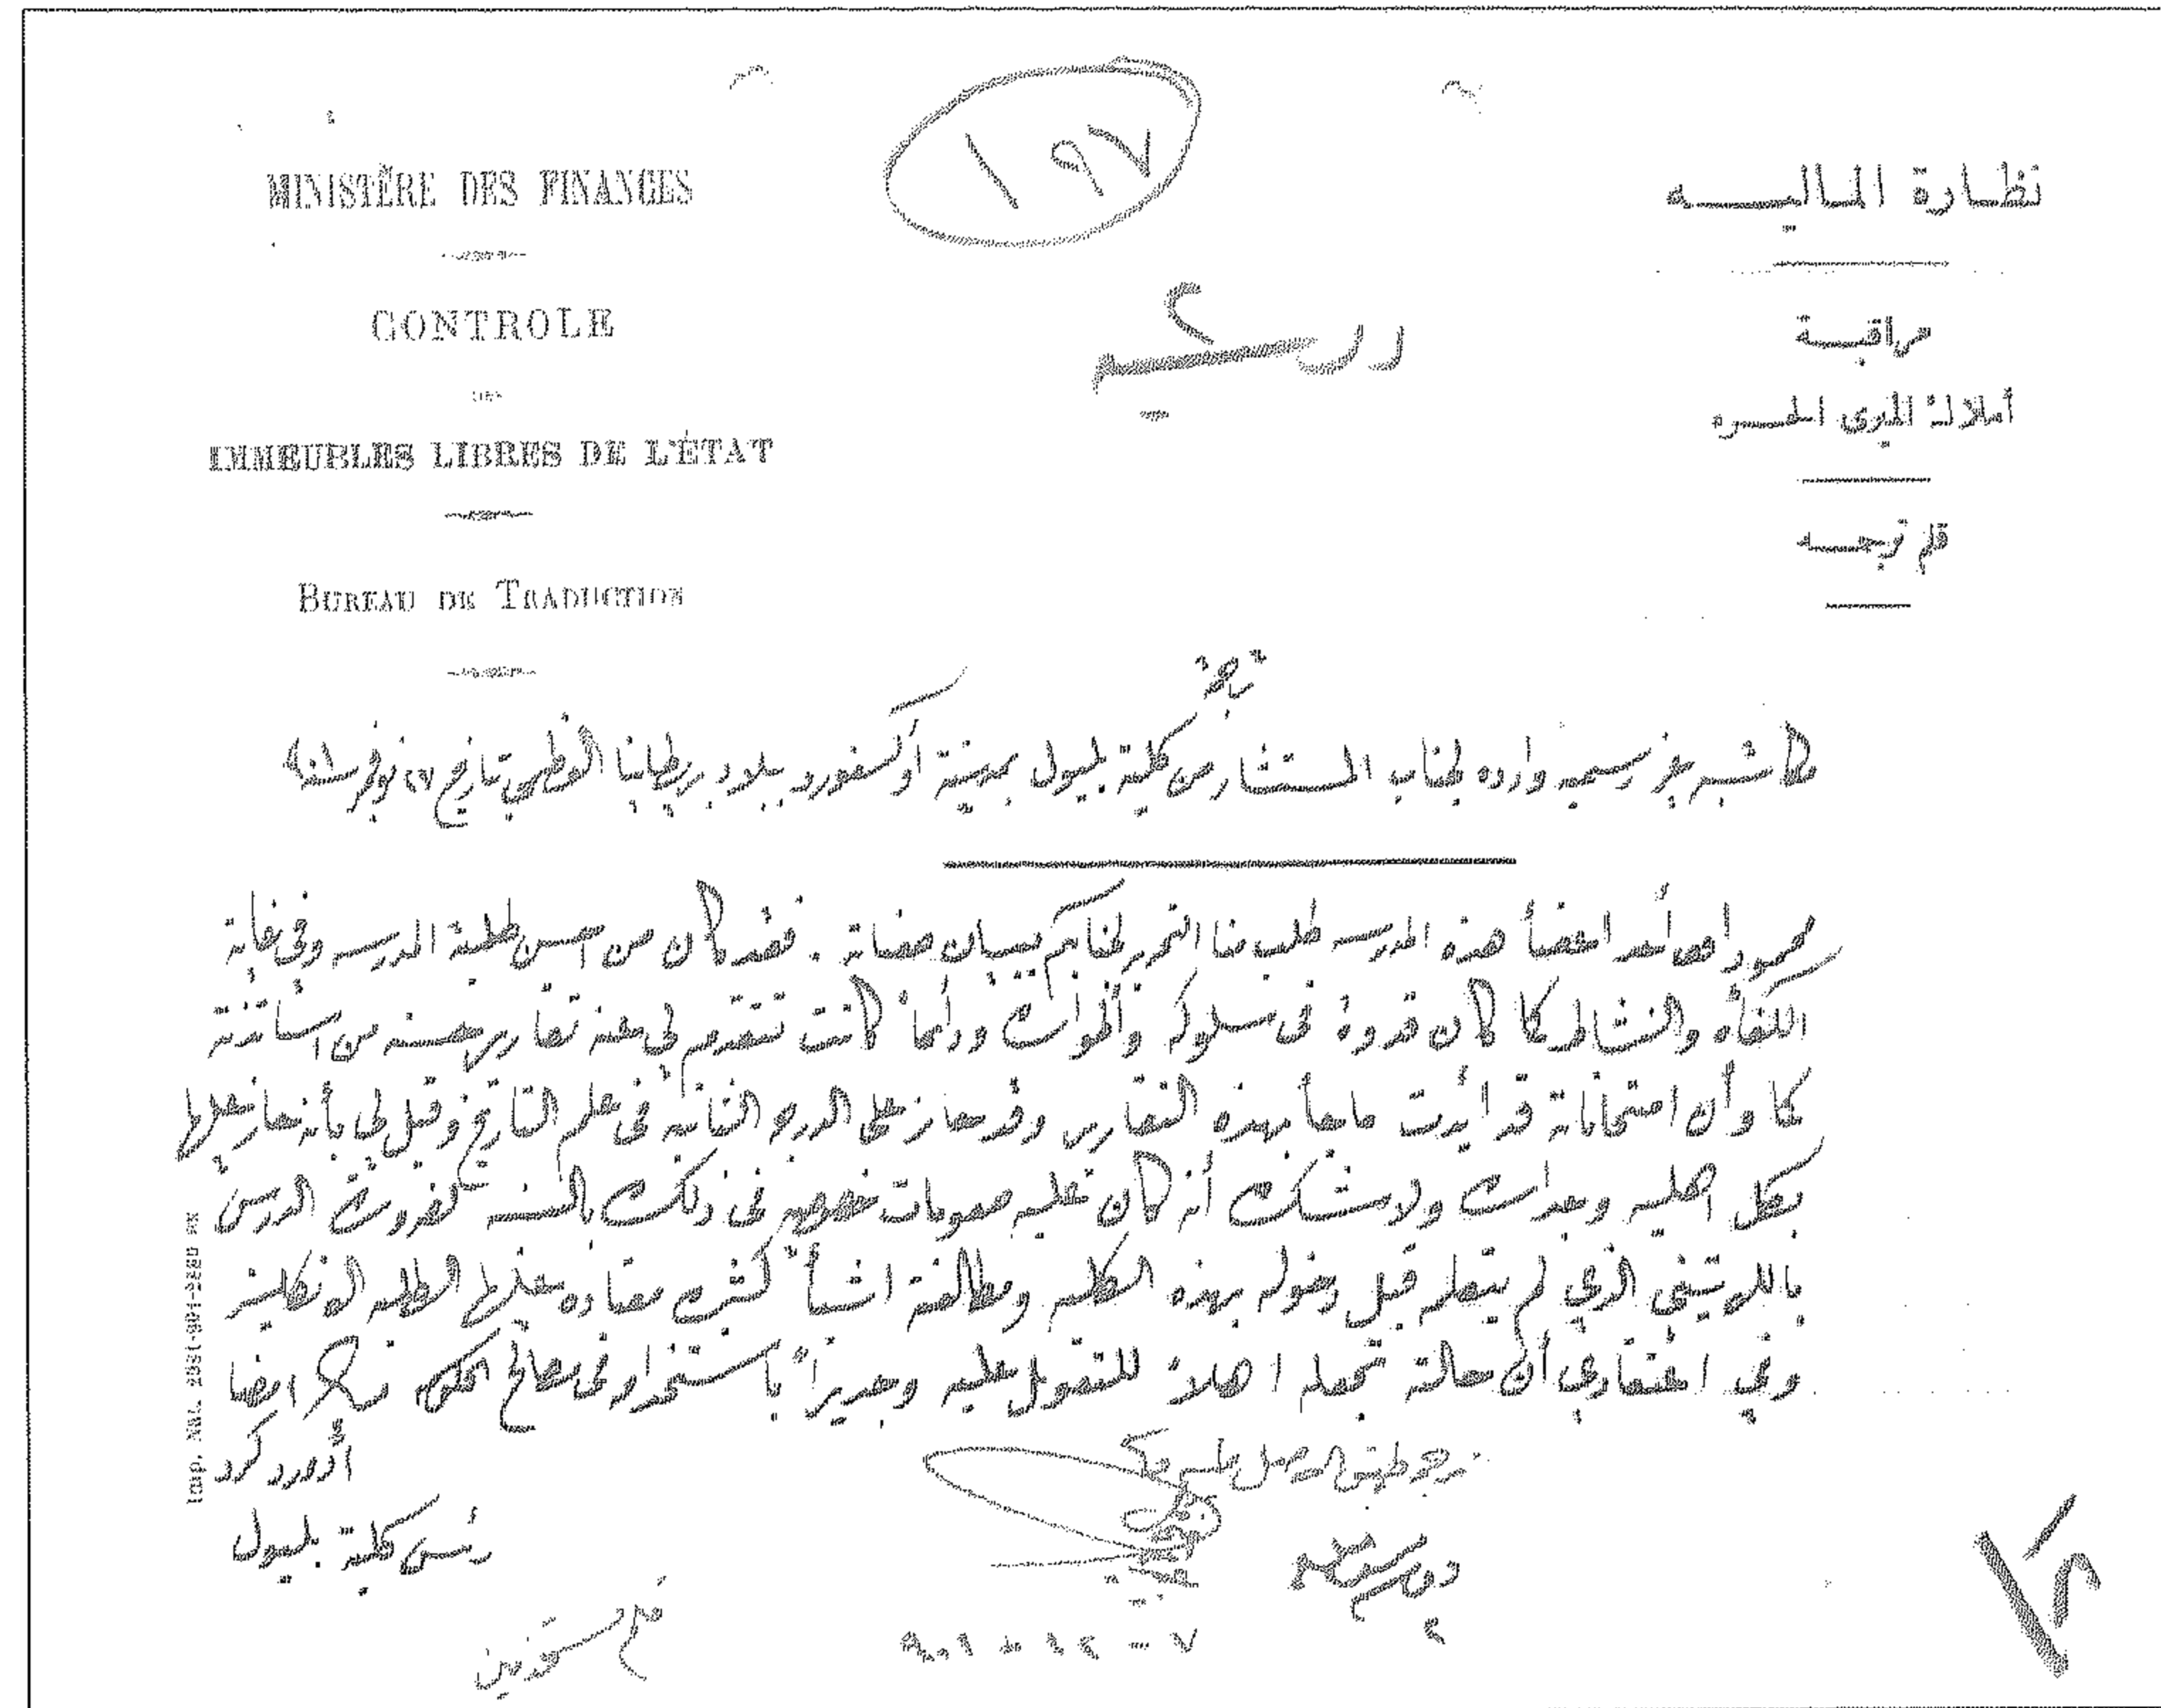 MINISTÈRE DES FINANCES
CONTROLE
DES
IMMEUBLES LIBRES DE L'ÉTAT
BUREAU DE TRADUCTION
١٩٧
نظارة الماليه
مراقبة
أملاك الميرى الحره
قلم ترجمه
ترجمة
مكاتبه غير رسميه وارده لجناب المستشار من كلية بليول بمدينة أوكسفورد ببلاد بريطانيا العظمى تاريخ ٢٧ نوفمبر سنة ٩٠١
محمود أحد اعضأ هذه المدرسه طلب منا التحرير لجنابكم ببيان صفاته . فقد كان من احسن طلبة المدرسه وفى غاية
الكفأه والنشاط كما كان قدوة فى سلوكه وأطواره ودائماً كانت تتقدم لى عنه تقارير حسنه من اساتذته
كما وأن امتحاناته قد ائدت ماجأ بهذه التقارير وقد حاز على الدرجه الثانيه فى علم التاريخ وقيل لى بأنه حاز عليها
بكل اهليه وجداره ولا شك أنه كان عليه صعوبات خصوصيه فى ذلك بالنسبه لضرورة الدرس
باللاتينى الذي لم يتعلمه قبل دخوله بهذه الكليه ومطالعة اشيأ كثيره معتاده عليها الطلبه الانكليز
وفي اعتقادي أن حالته تجعله اهلاً للتعويل عليه وجديراً باستخدامه فى مصالح الحكومه امضا
أدورد كرد
رئيس كلية بليول
قلم مستخدمين
٧ - ١٢ - ٩٠١
Imp. Nat. 2681-901-5550 ex